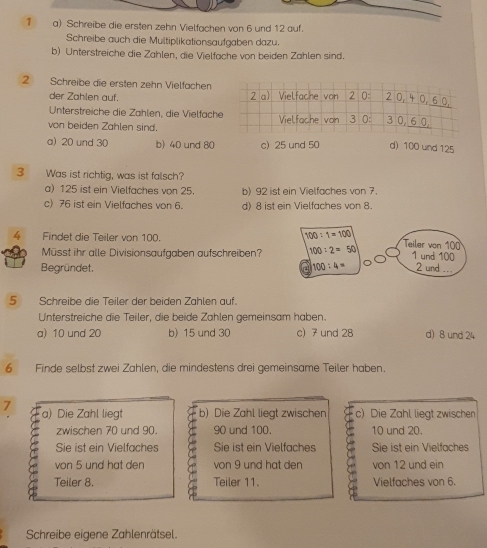 1 a) Schreibe die ersten zehn Vielfachen von 6 und 12 auf.
Schreibe auch die Multiplikationsaufgaben dazu.
b) Unterstreiche die Zahlen, die Vielfache von beiden Zahlen sind.
2 Schreibe die ersten zehn Vielfachen
der Zahlen auf.
Unterstreiche die Zahlen, die Vielfache
von beiden Zahlen sind.
2 a) Vielfache von 20: 20, 40, 60,
Vielfache von 30: 30, 60,
a) 20 und 30 b) 40 und 80 c) 25 und 50 d) 100 und 125
3 Was ist richtig, was ist falsch?
a) 125 ist ein Vielfaches von 25. b) 92 ist ein Vielfaches von 7.
c) 76 ist ein Vielfaches von 6. d) 8 ist ein Vielfaches von 8.
4 Findet die Teiler von 100.
Müsst ihr alle Divisionsaufgaben aufschreiben?
Begründet.
100 : 1 = 100
100 : 2 = 50
100 : 4 =
Teiler von 100
1 und 100
2 und ...
5 Schreibe die Teiler der beiden Zahlen auf.
Unterstreiche die Teiler, die beide Zahlen gemeinsam haben.
a) 10 und 20 b) 15 und 30 c) 7 und 28 d) 8 und 24
6 Finde selbst zwei Zahlen, die mindestens drei gemeinsame Teiler haben.
7
a) Die Zahl liegt
zwischen 70 und 90.
Sie ist ein Vielfaches
von 5 und hat den
Teiler 8.
b) Die Zahl liegt zwischen
90 und 100.
Sie ist ein Vielfaches
von 9 und hat den
Teiler 11.
c) Die Zahl liegt zwischen
10 und 20.
Sie ist ein Vielfaches
von 12 und ein
Vielfaches von 6.
Schreibe eigene Zahlenrätsel.